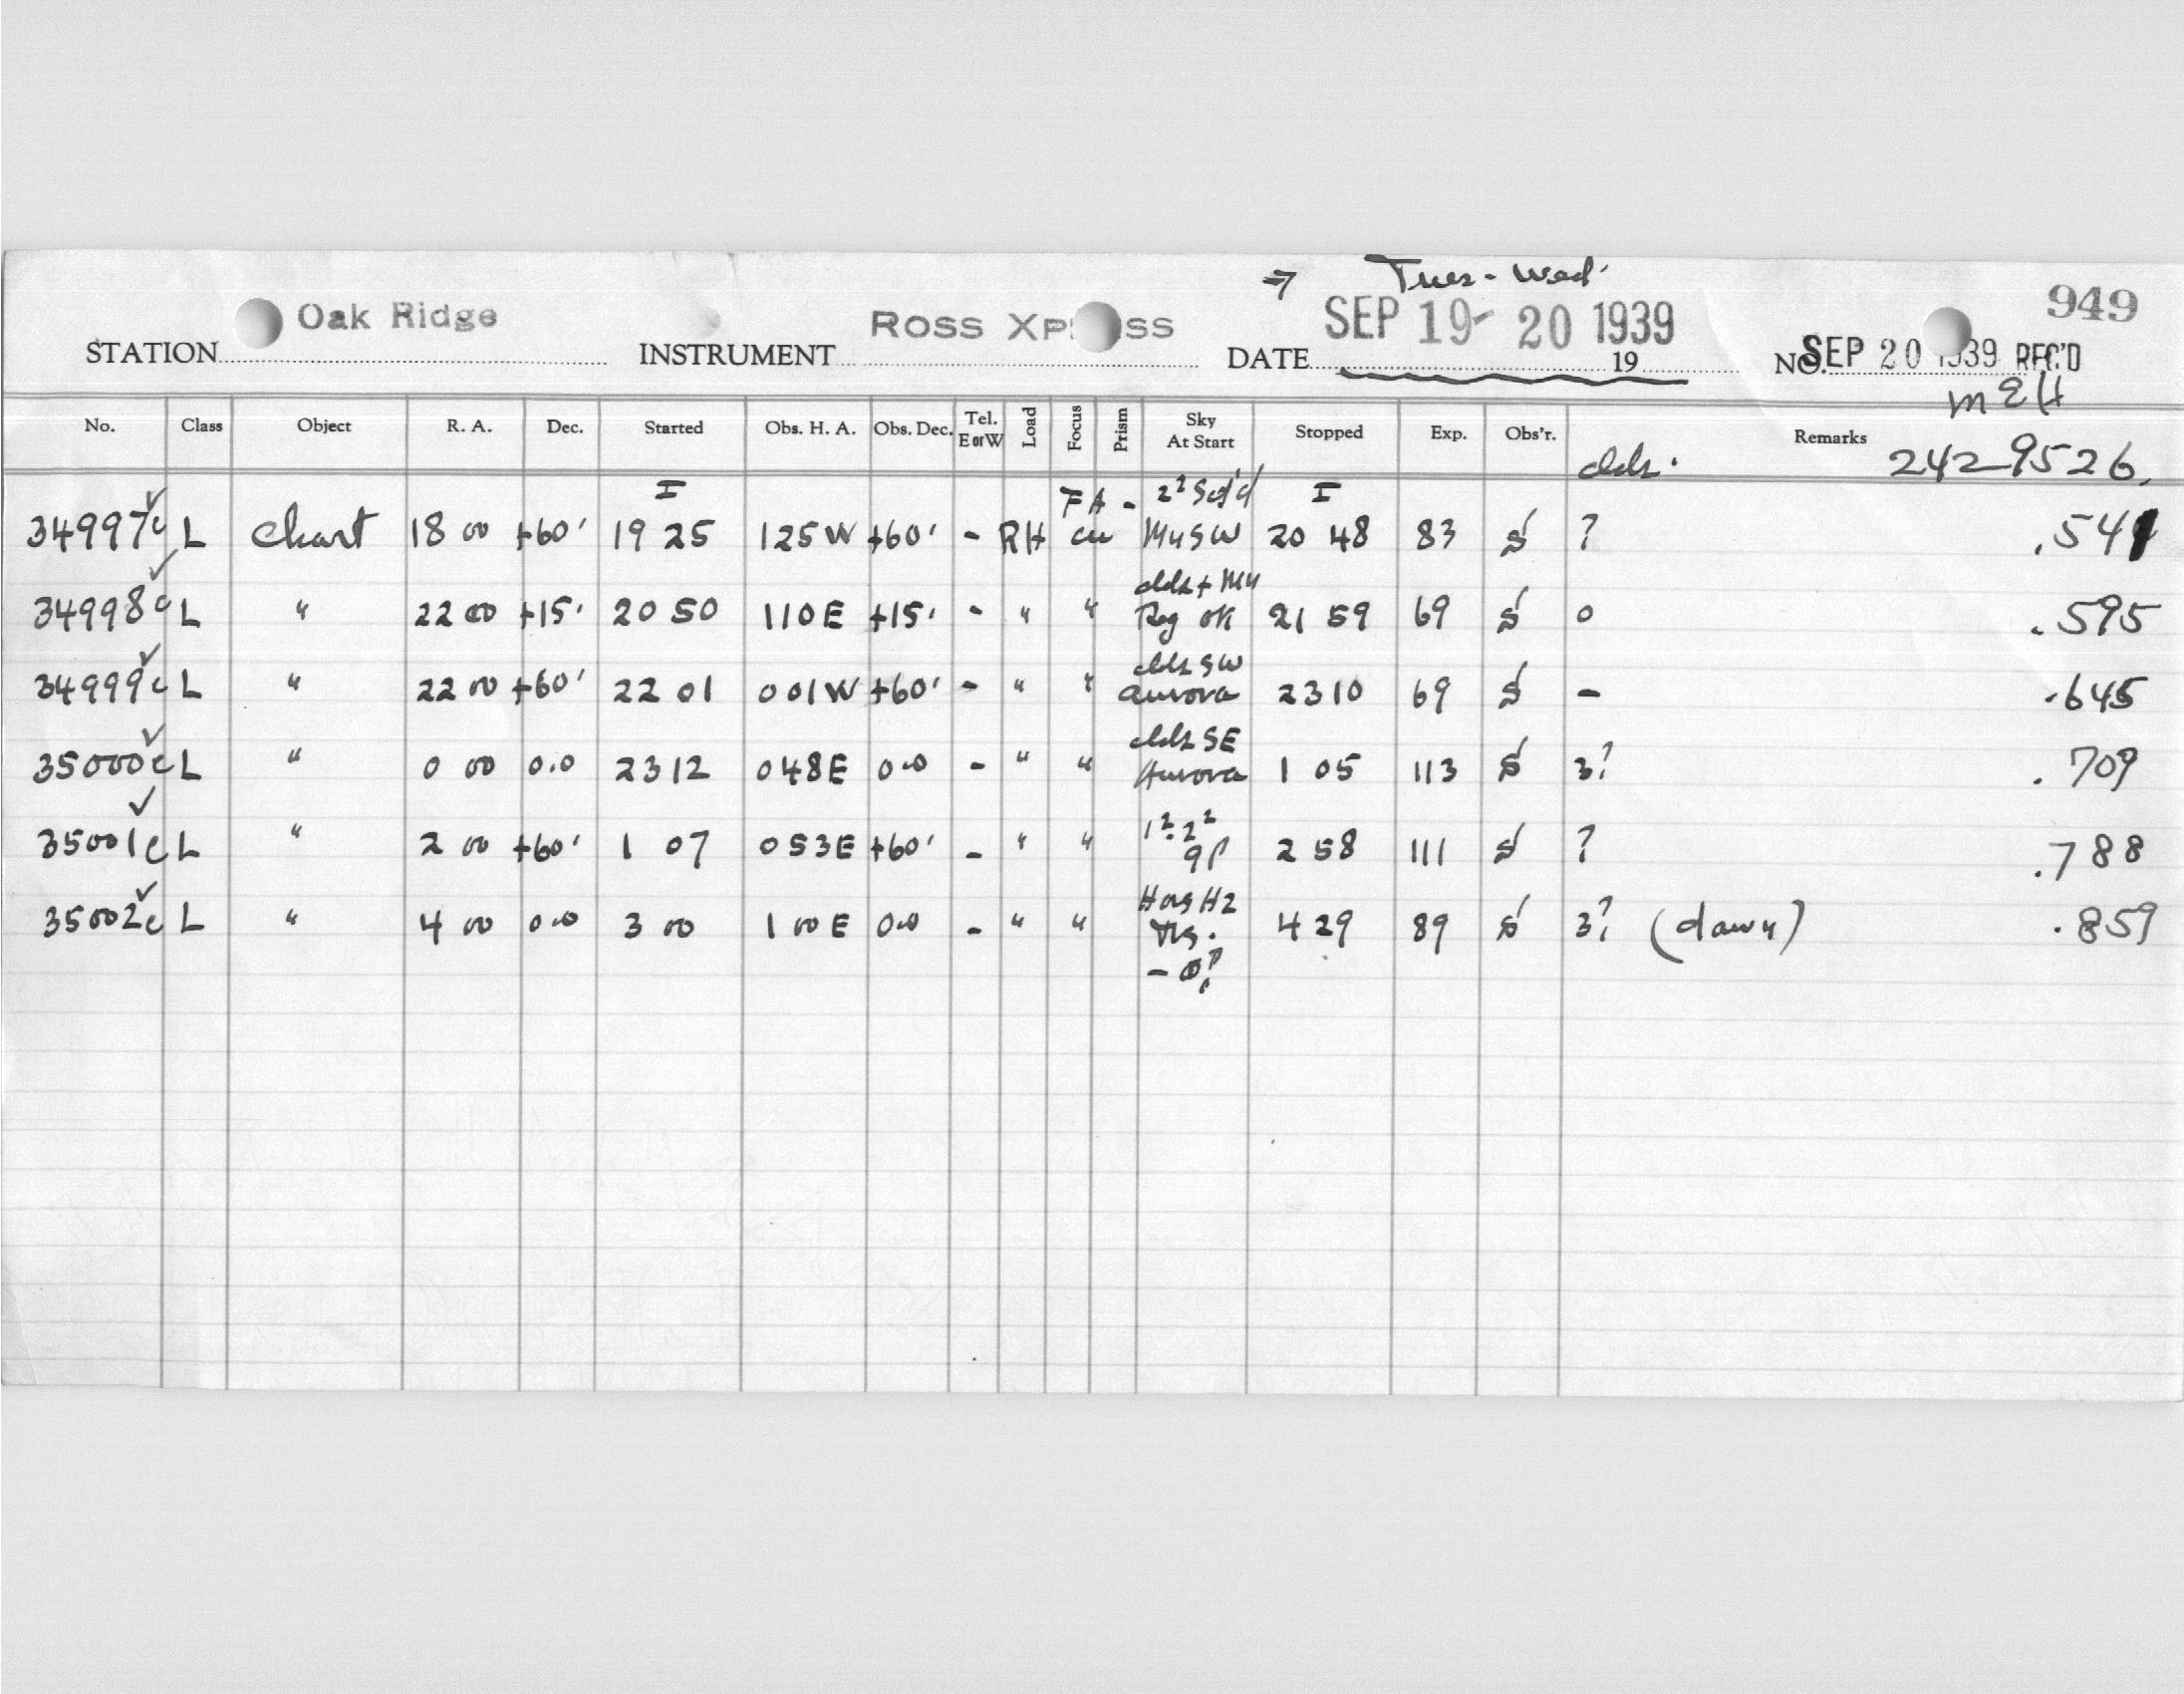 ⇒ Tues - Wed.
949
STATION Oak Ridge INSTRUMENT ROSS XP SS DATE SEP 19 - 20 1939 19 NO. SEP 20 1939 REC'D
No. Class Object R. A. Dec. Started Obs. H. A. Obs. Dec. Tel. E or W Load Focus Prism Sky At Start Stopped Exp. Obs'r. Remarks
clds. 2429526.
I FA - I
34997c L Chart 18 00 +60' 19 25 125W +60' - RH 20 48 83 S ? .541
clds + My
34998c L " 22 00 +15' 20 50 110E +15' - " " Reg OK 21 59 69 S 0 .595
clds SW
34999c L " 22 00 +60' 22 01 001W +60' - " " aurora 23 10 69 S - .645
clds SE
35000c L " 0 00 0.0 23 12 048E 0.0 - " " Aurora 1 05 113 S 3? .709
35001c L " 2 00 +60' 1 07 053E +60' - " " 2 58 111 S ? .788
35002c L " 4 00 0.0 3 00 1 00 E 0.0 - " " 4 29 89 S 3? (dawn) .859